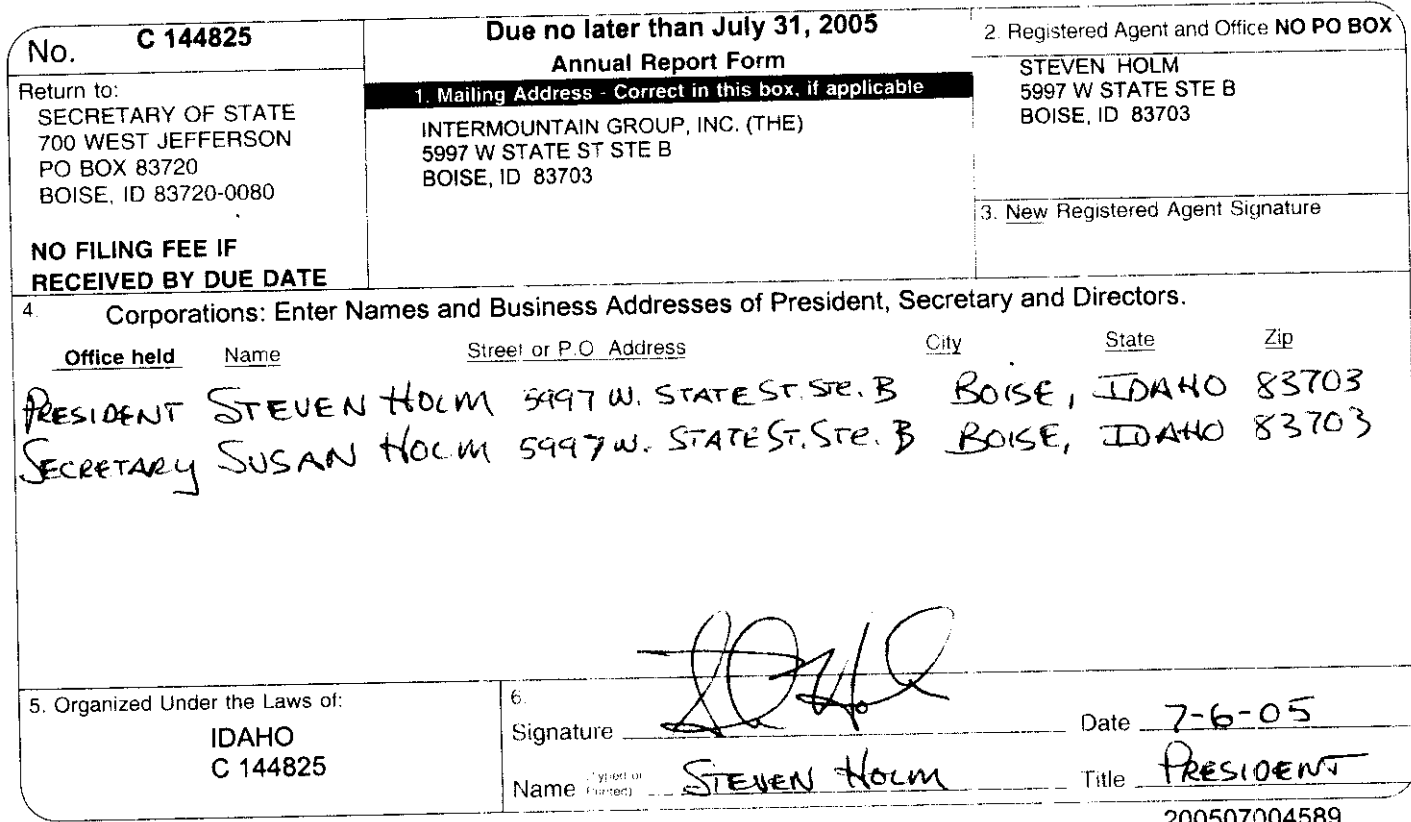 No. C 144825
Return to:
SECRETARY OF STATE
700 WEST JEFFERSON
PO BOX 83720
BOISE, ID 83720-0080
NO FILING FEE IF
RECEIVED BY DUE DATE
Due no later than July 31, 2005
Annual Report Form
1. Mailing Address - Correct in this box, if applicable
INTERMOUNTAIN GROUP, INC. (THE)
5997 W STATE ST STE B
BOISE, ID 83703
2. Registered Agent and Office NO PO BOX
STEVEN HOLM
5997 W STATE STE B
BOISE, ID 83703
3. New Registered Agent Signature
4. Corporations: Enter Names and Business Addresses of President, Secretary and Directors.
Office held Name Street or P.O. Address City State Zip
PRESIDENT STEVEN HOLM 5997 W. STATE ST. STE. B BOISE, IDAHO 83703
SECRETARY SUSAN HOLM 5997 W. STATE ST. STE. B BOISE, IDAHO 83703
5. Organized Under the Laws of:
IDAHO
C 144825
6.
Signature
Date 7-6-05
Name (Typed or Printed) STEVEN HOLM
Title PRESIDENT
200507004589